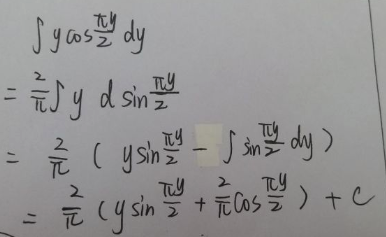 ∫ y cos πy/2 dy
= 2/π ∫ y d sin πy/2
= 2/π ( y sin πy/2 − ∫ sin πy/2 dy )
= 2/π ( y sin πy/2 + 2/π cos πy/2 ) + C